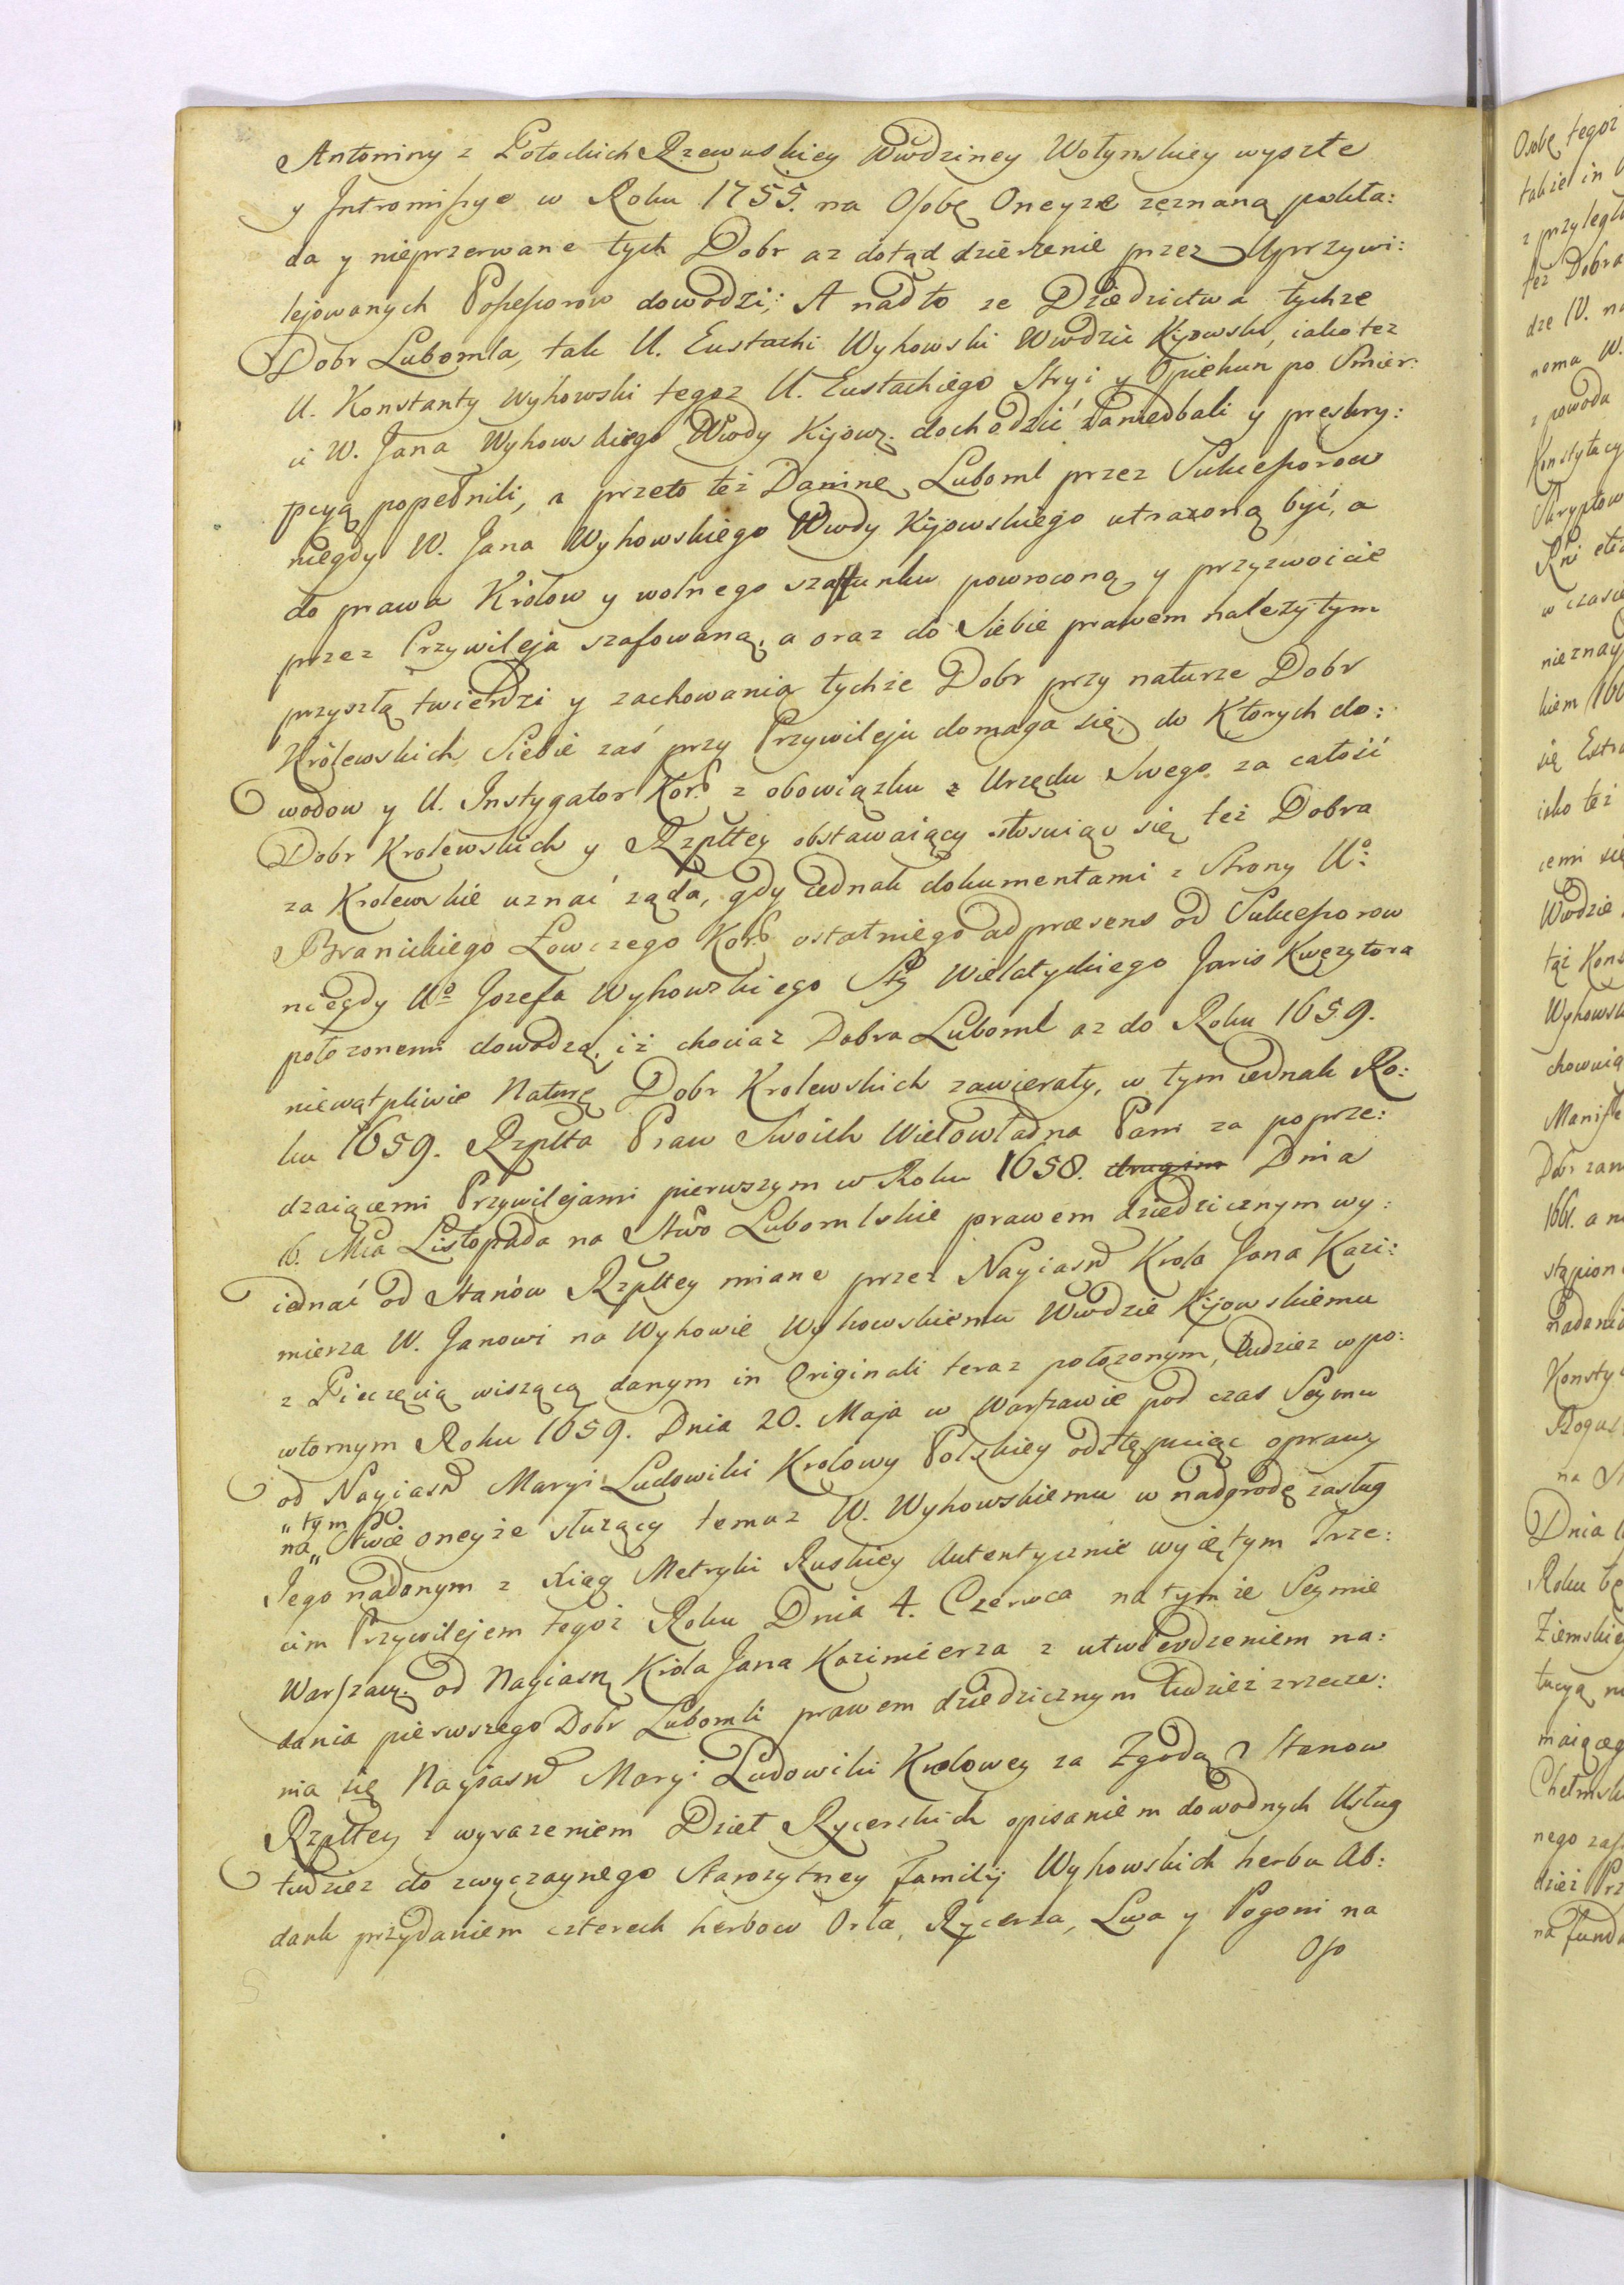 Antoniny z Potockich Rzewuskiey Wwdziney Wołynskiey wyszłe
y Intromissye w Roku 1755. na Osobę Oneyze zeznaną pokła:
da y nieprzerwane tych Dobr az dotąd dzierzenie przez Uprzywi:
lejowanych Possessorow dowodzi; A nadto ze Dziedzictwa tychze
Dobr Lubomla, tak U. Eustachi Wyhowski Wwdzic Kijowski, iako tez
U. Konstanty Wyhowski tegoz U. Eustachiego Stryi y Opiekun po Smier:
ci W. Jana Wyhowskiego Wwdy Kijows. dochodzić zaniedbali y preskry:
pcyą popełnili, a przeto też Daninę Luboml przez Sukcessorow
niegdy W. Jana Wyhowskiego Wwdy Kijowskiego utraconą być, a
do prawa Królow y wolnego szafunku powroconą y przyzwoicie
przez Przywileja szafowaną, a oraz do Siebie prawem należytym
przyszłą twierdzi y zachowania tychże Dobr przy naturze Dobr
Królewskich, Siebie zaś przy Przywileju domaga się, do Ktorych do:
wodow y U. Instygator Kor. z obowiązku z Urzędu Swego za całość
Dobr Krolewskich y Rzpltey obstawaiący stosuiąc się też Dobra
za Krolewskie uznać ząda, gdy iednak dokumentami z Strony Uo:
Branickiego Łowczego Kor. ostatniego ad præsens od Sukcessorow
niegdy Uo Jozefa Wyhowskiego Sty Wielatyckiego Juris Kwęzytora
położonemi dowodzą, iż chociaż Dobra Luboml az do Roku 1659.
niewątpliwie Naturę Dobr Krolewskich zawierały, w tym iednak Ro:
ku 1659. Rzplta Praw Swoich Wielowładna Pani za poprze:
dzaiącemi Przywilejami pierwszym w Roku 1658. drugim Dnia
16. Mca Listopada na Stwo Lubomlskie prawem dziedzicznym wy:
iednać od Stanów Rzpltey miane przez Nayiasn Krola Jana Kazi:
mierza W. Janowi na Wyhowie Wyhowskiemu Wwdzie Kijowskiemu
z Pieczęcią wiszącą danym in Originali teraz położonym, tudziez wpo:
wtornym Roku 1659. Dnia 20. Maja w Warszawie pod czas Seymu
od Nayiasn Maryi Ludowiki Krolowy Polskiey odstępuiąc oprawy
„tym
na„ Stwie oneyże służący temuz W. Wyhowskiemu w nadgrodę zasług
Jego nadanym z Xiąg Metryki Ruskiey Autentycznie wyiętym Trze:
cim Przywilejem tegoż Roku Dnia 4. Czerwca na tymże Seymie
Warszaw: od Nayiasn Króla Jana Kazimierza z utwierdzeniem na:
dania pierwszego Dobr Lubomli prawem dziedzicznym tudzież zrzecze:
nia się Nayiasn Maryi Ludowiki Krolowey za Zgodą Stanow
Rzpltey z wyrazeniem Dzieł Rycerskich opisaniem dowodnych Usług
tudziez do zwyczaynego Starozytney familij Wyhowskich herbu Ab:
dank przydaniem czterech herbow Orła, Rycerza, Lwa y Pogoni na
Oso